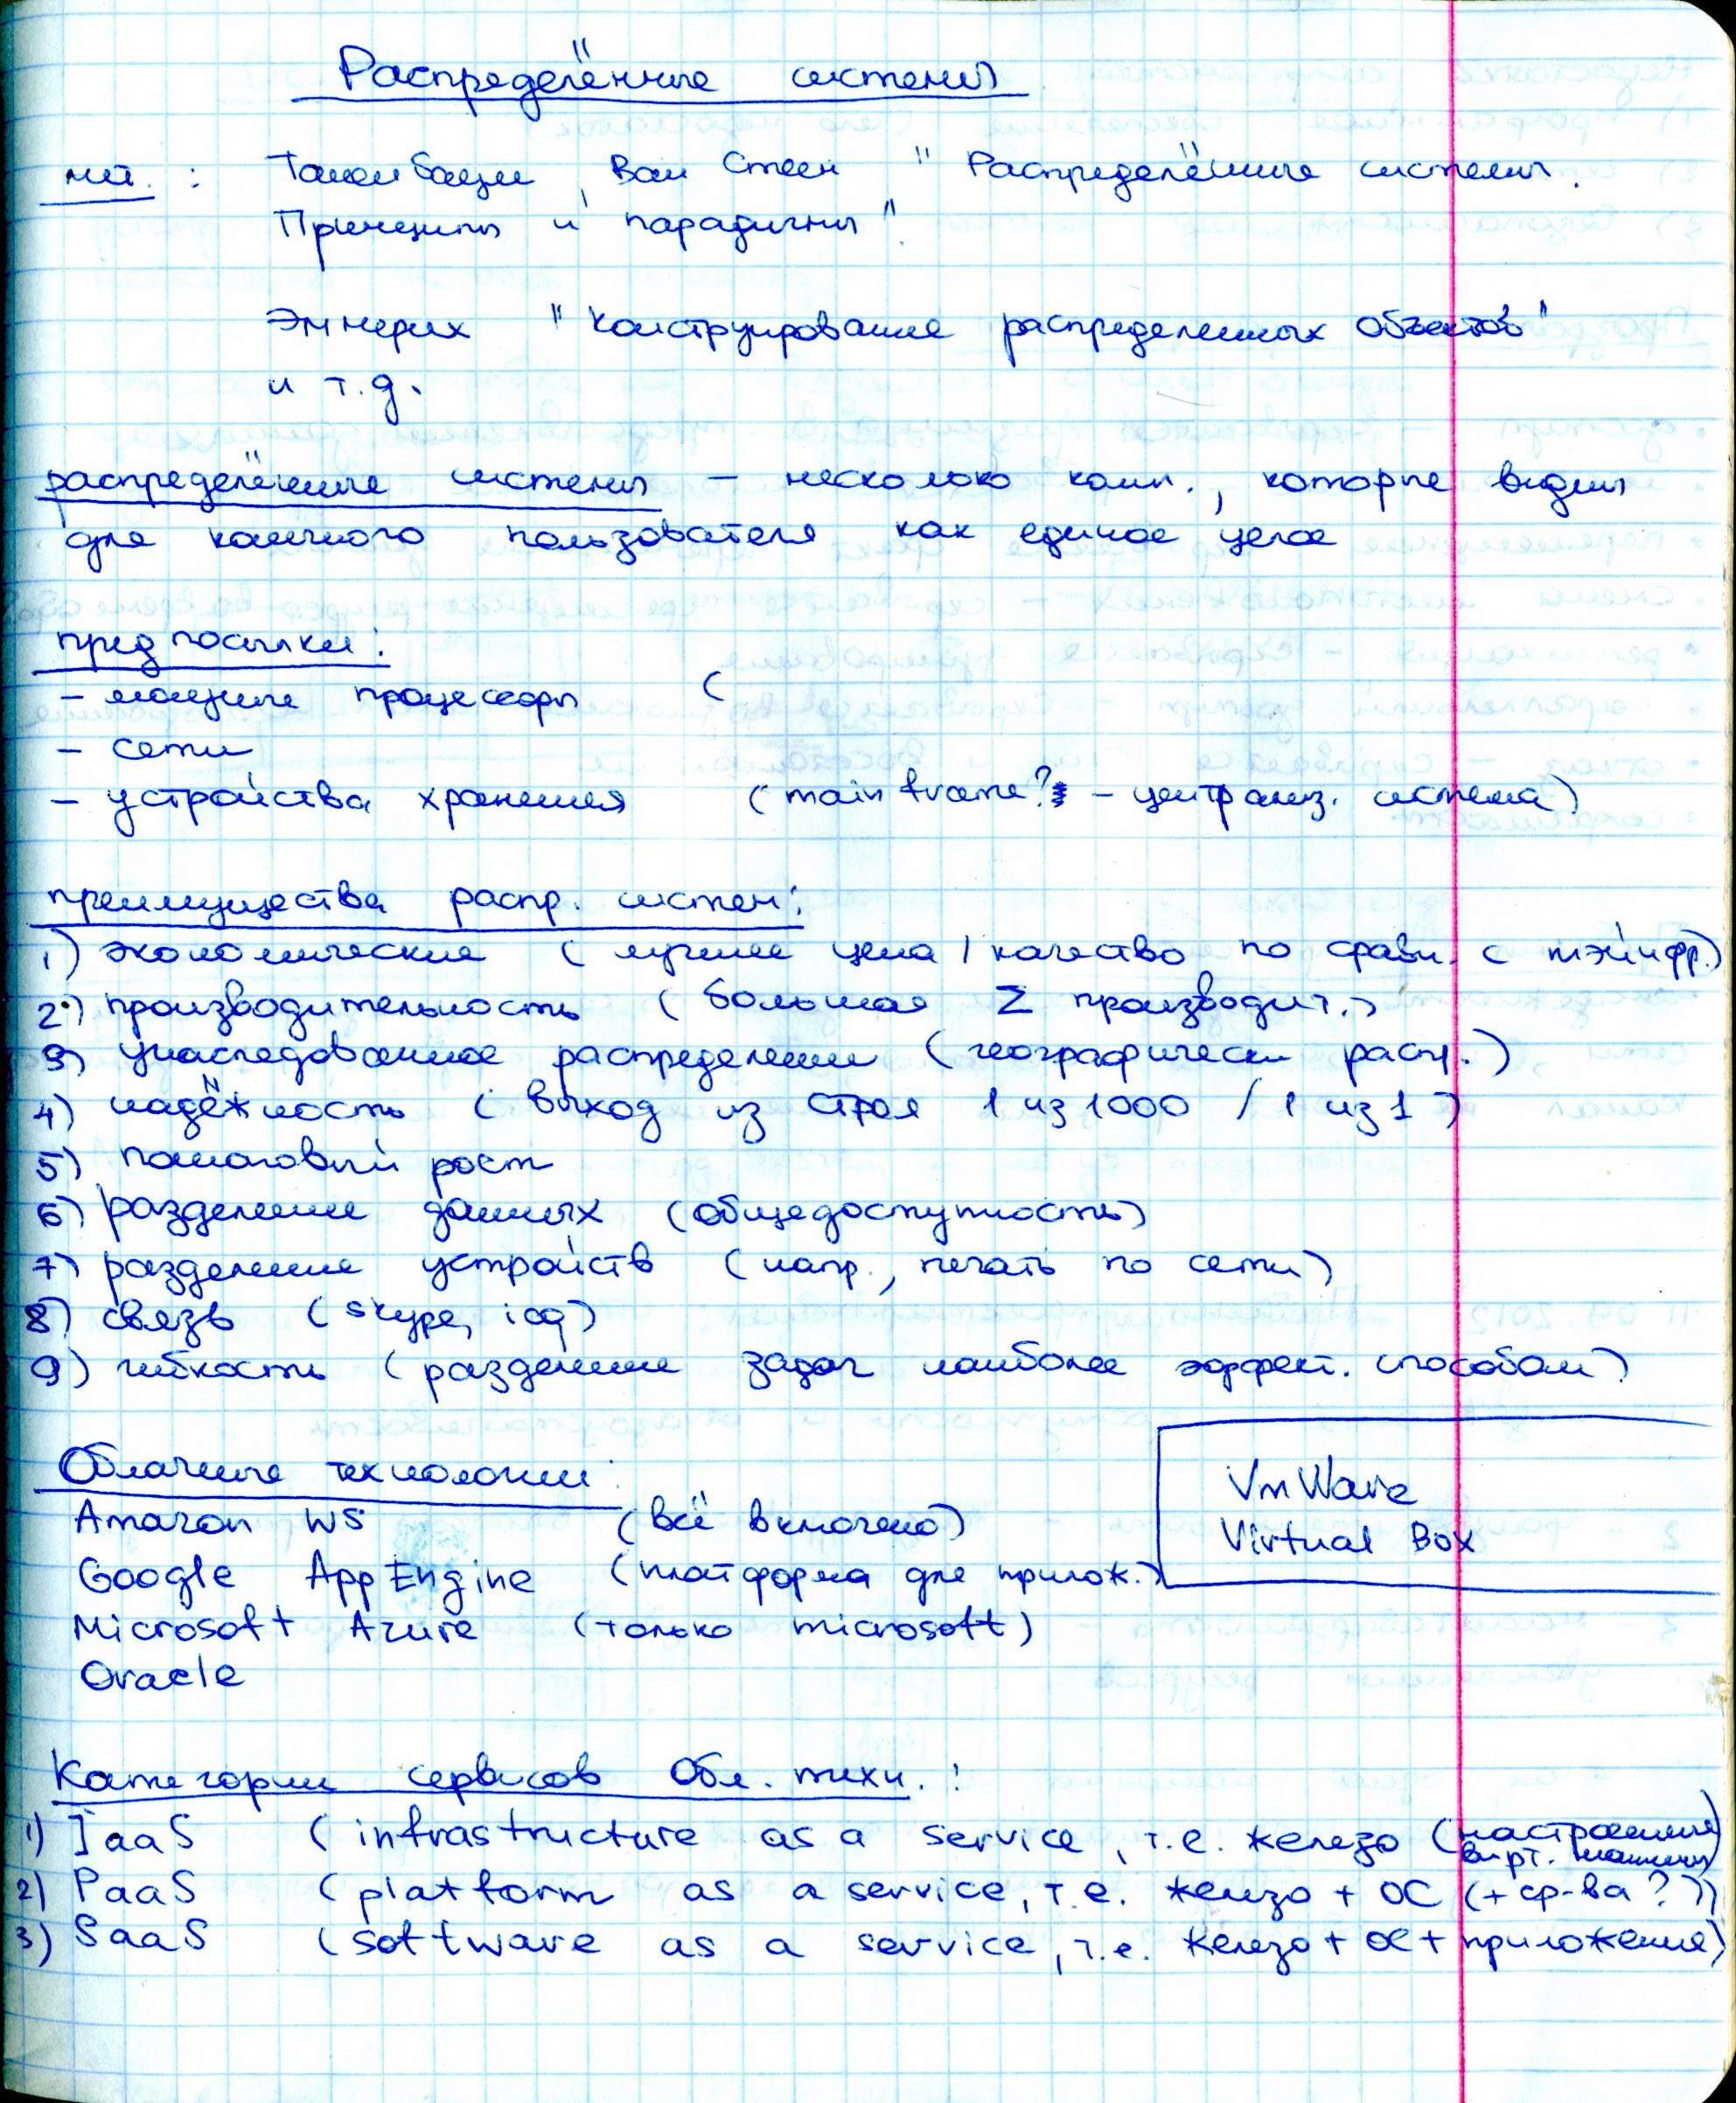 Распределённые системы
лит. : Таненбаум, Ван Стеен " Распределённые системы.
Принципы и парадигмы".
Эммерих "Конструирование распределенных объектов"
и т.д.
распределённые системы – несколько комп., которые видны
для конечного пользователя как единое целое
предпосылки:
– мощные процессоры (
– сети
– устройства хранения (mainframe? – централиз. система)
преимущества распр. систем:
1) экономические (лучшее цена / качество по сравн. с мэйнфр.)
2) производительность (большая Σ производит.)
3) унаследованное распределение (географически распр.)
4) надёжность (выход из строя 1 из 1000 / 1 из 1)
5) пошаговый рост
6) разделение данных (общедоступность)
7) разделение устройств (напр., печать по сети)
8) связь (skype, icq)
9) гибкость (разделение задач наиболее эффект. способом)
Облачные технологии:
Amazon WS (всё включено)
Google App Engine (платформа для прилож.)
Microsoft Azure (только microsoft)
Oracle
VmWare
Virtual Box
Категории сервисов Обл. техн. :
1) IaaS (infrastructure as a service, т.е. железо (настроенные вирт. машины)
2) PaaS (platform as a service, т.е. железо + ОС (+ ср-ва ?))
3) SaaS (software as a service, т.е. железо + ОС + приложения)